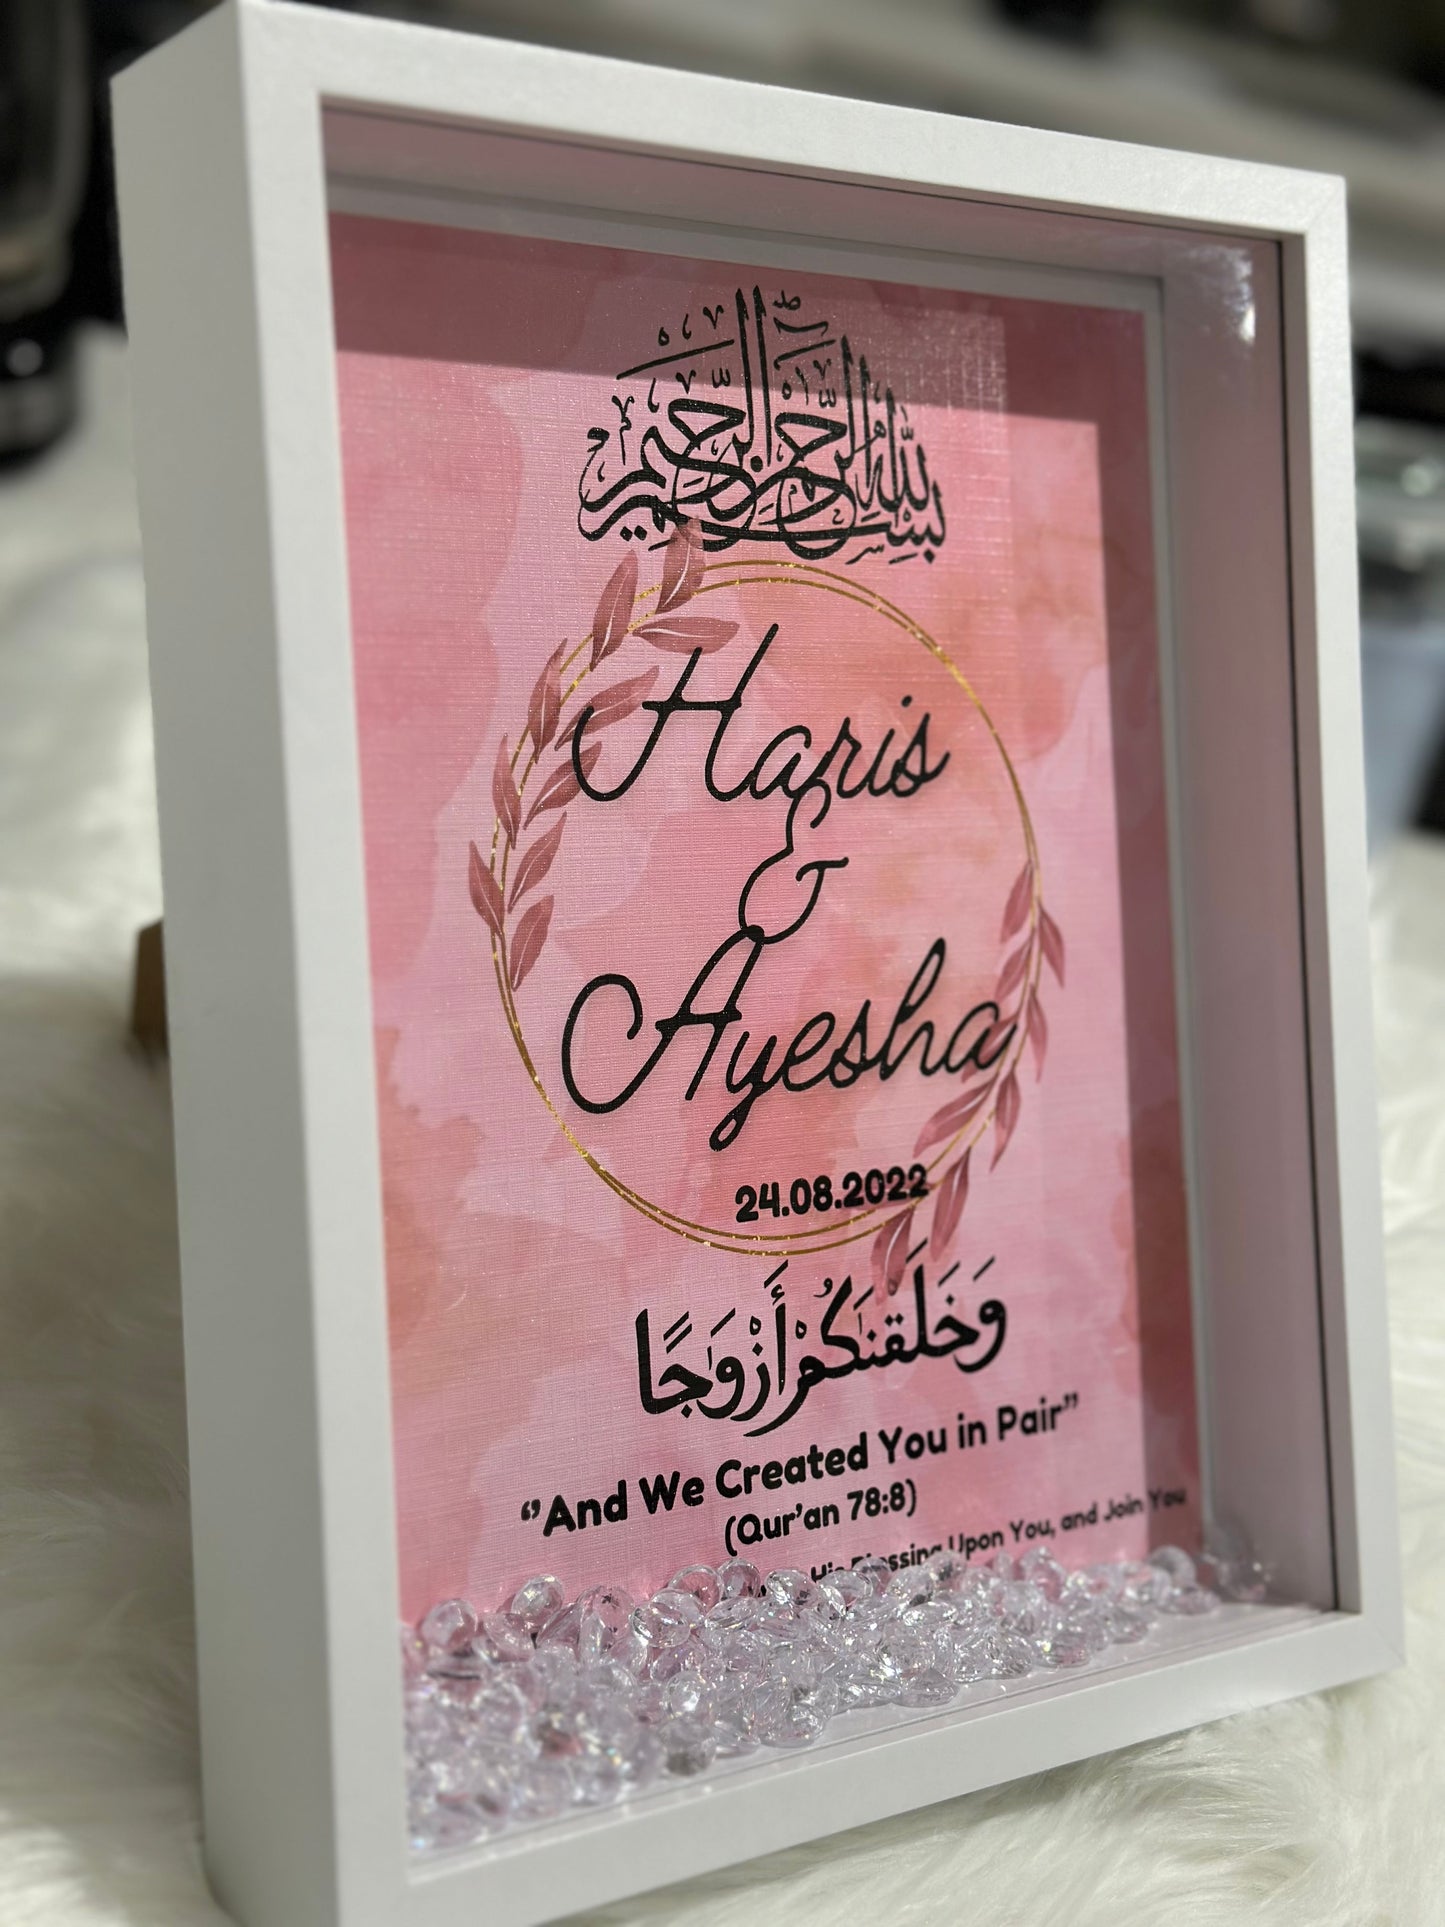 بِسْمِ اللهِ الرَّحْمٰنِ الرَّحِيْمِ
Haris
&
Ayesha
24.08.2022
وَخَلَقْنَٰكُمْ أَزْوَٰجًا
“And We Created You in Pair”
(Qur’an 78:8)
His Blessing Upon You, and Join You